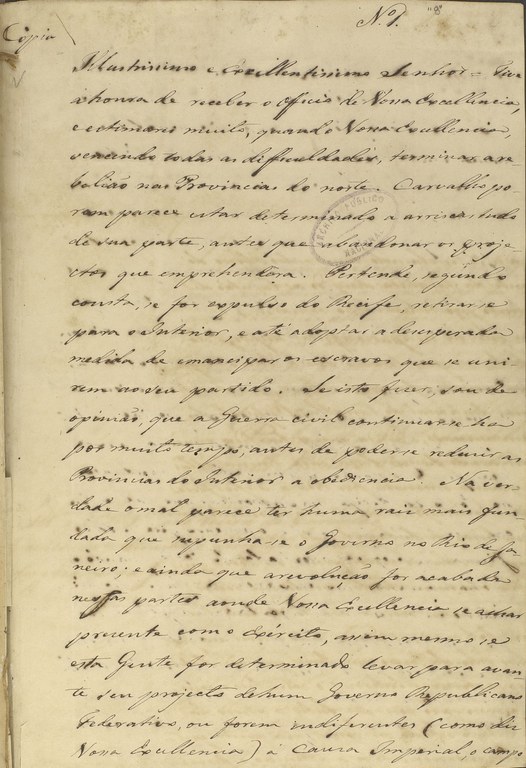 Nº 1.
"8
Cópia
Illustrissimo e Excellentissimo Senhor = Tive
a honra de receber o officio de Vossa Excellencia,
e estimarei muito, quando Vossa Excellencia,
vencendo todas as difficuldades, terminar a re-
belião nas Provincias do norte. Carvalho po-
rem parece estar determinado a arriscar tudo
de sua parte, antes que abandonar os proje-
ctos que emprehendêra. Pertende, segundo
consta, se for expulso do Recife, retirar-se
para o Interior, e até adoptar a desesperada
medida de emancipar os escravos que se uni-
rem ao seu partido. Se isto fizer, sou de
opinião, que a Guerra civil continuar-se ha
por muito tempo, antes de poder-se reduzir as
Provincias do Interior a obediencia. Na ver-
dade o mal parece ter huma raiz mais fun-
dada que suppunha-se o Governo no Rio de Ja-
neiro; e ainda que a revolução for acabada
nessas partes aonde Vossa Excellencia se achar
presente com o Exército, assim mesmo se
esta Gente for determinado levar para avan-
te seu projecto de hum Governo Republicano
Federativo, ou forem indiferentes (como diz
Vossa Excellencia) á Causa Imperial, o campo
ARCHIVO PUBLICO
NACIONAL